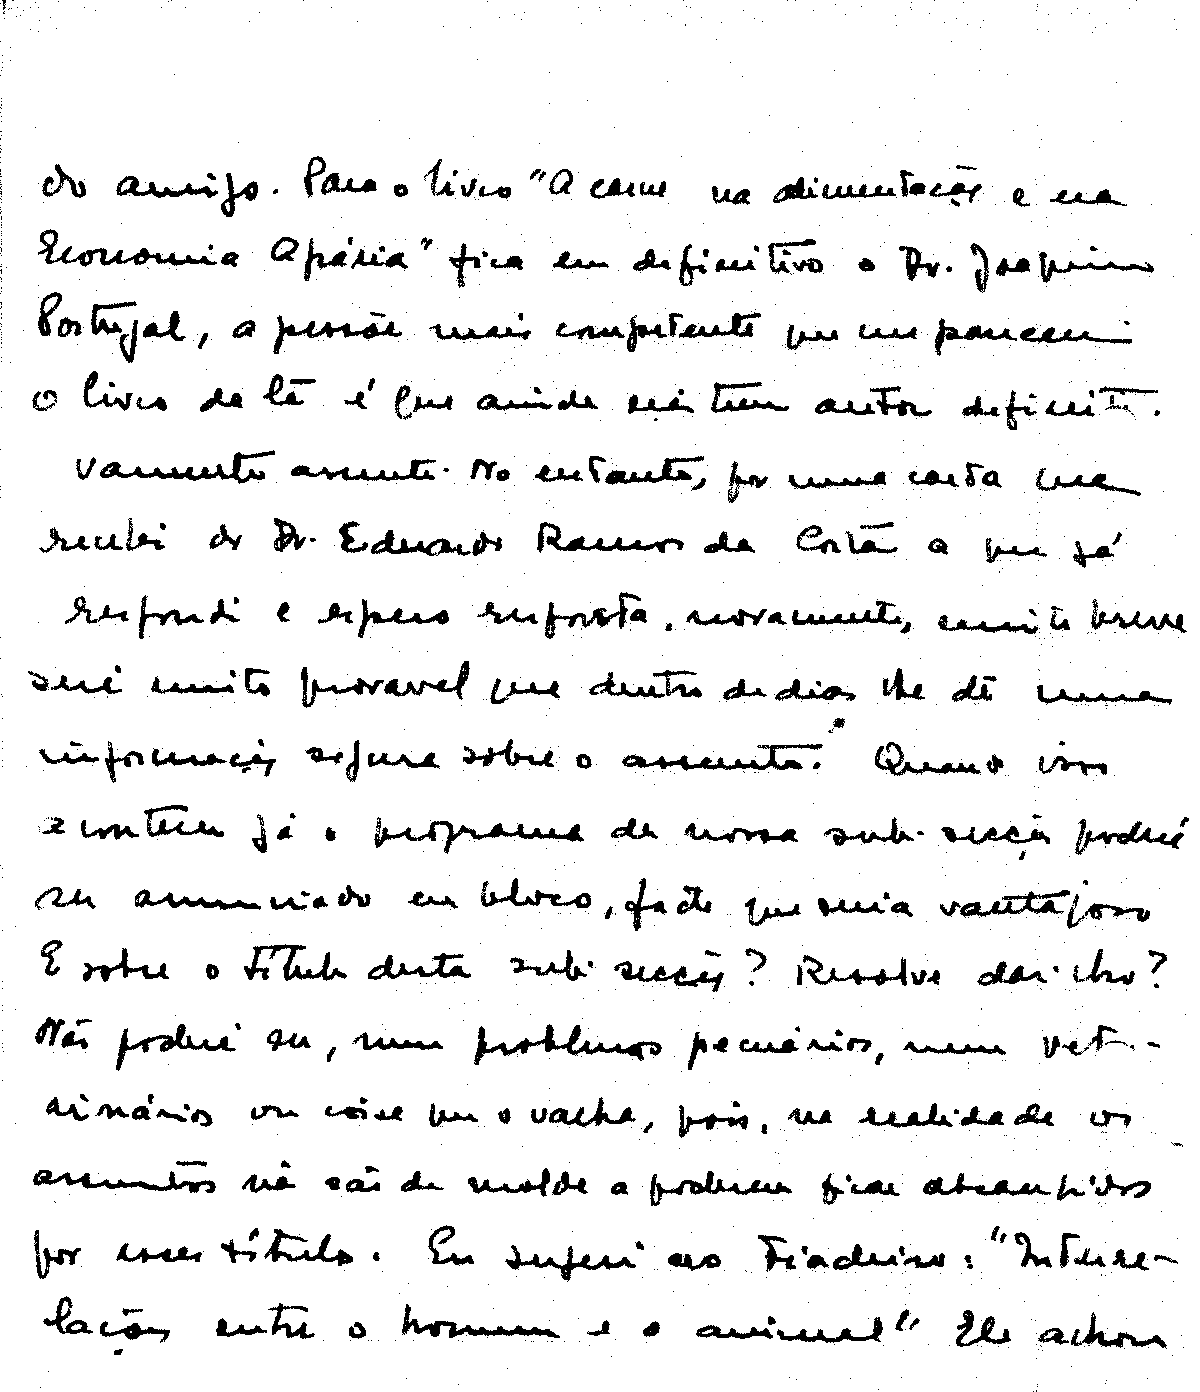 do amigo. Para o livro "A carne na alimentação e na
Economia Agrária" fica em definitivo o Dr. Joaquim
Portugal, a pessôa mais competente que me pareceu
O livro da lã é que ainda não tem autor definiti-
vamente assente. No entanto, por uma carta que
recebi do Dr. Eduardo Ramos da Costa a que já
respondi e espero resposta, novamente, muito breve
será muito provavel que dentro de dias lhe dê uma
informação segura sobre o assunto. Quando isso
acontecer já o programa da nossa sub-secção poderá
ser anunciado em bloco, facto que seria vantajoso
E sobre o título desta sub-secção? Resolve dar-lho?
Não poderá ser, nem problemas pecuários, nem vet-
rinários ou coisa que o valha, pois, na realidade os
assuntos não são de molde a poderem ficar abrangidos
por esses títulos. Eu sugeri ao Fiadeiro: "Interre-
lações entre o homem e o animal" Ele achou